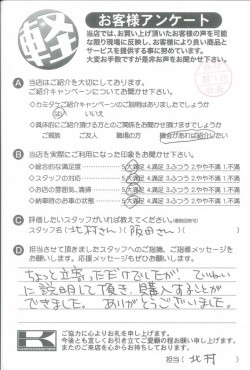 軽
お客様アンケート
当店では、お買い上げ頂いたお客様の声を可能
な限り現場に反映し、お客様により良い商品と
サービスを提供する事に努めています。
大変お手数ですが是非お声をお聞かせ下さい。
A 当店はご紹介を大切にしてあります。
ご紹介キャンペーンについてお聞かせ下さい?
◇カミタケご紹介キャンペーンのご説明はありましたでしょうか
はい いいえ
◇具体的にご紹介頂ける方とのご関係をお聞かせ頂けますでしょうか
ご親族 ご友人 職場の方 機会があれば紹介したい
B 当店を実際にご利用になった印象をお聞かせ下さい。
◇総合的な満足度 5.大満足 4.満足 3.ふつう 2.やや不満 1.不満
◇スタッフの対応 5.大満足 4.満足 3.ふつう 2.やや不満 1.不満
◇お店の雰囲気、清掃 5.大満足 4.満足 3.ふつう 2.やや不満 1.不満
◇納車時のお車の状態 5.大満足 4.満足 3.ふつう 2.やや不満 1.不満
C 評価したいスタッフがいれば教えてください。
スタッフ名( 北村さん )( 阪田さん )
D 担当させて頂きましたスタッフへのご指摘、ご指導メッセージを
お願いします。応援メッセージもぜひお願いします。
ちょっと立寄っただけでしたが、ていねい
に説明して頂き、購入することが
できました。ありがとうございました。
K
ご協力に心よりお礼を申し上げます。
今後とも宜しくお引き立てご愛顧の程お願い申し上げます。
またのご来店を心からお待ちしております。
担当( 北村 )